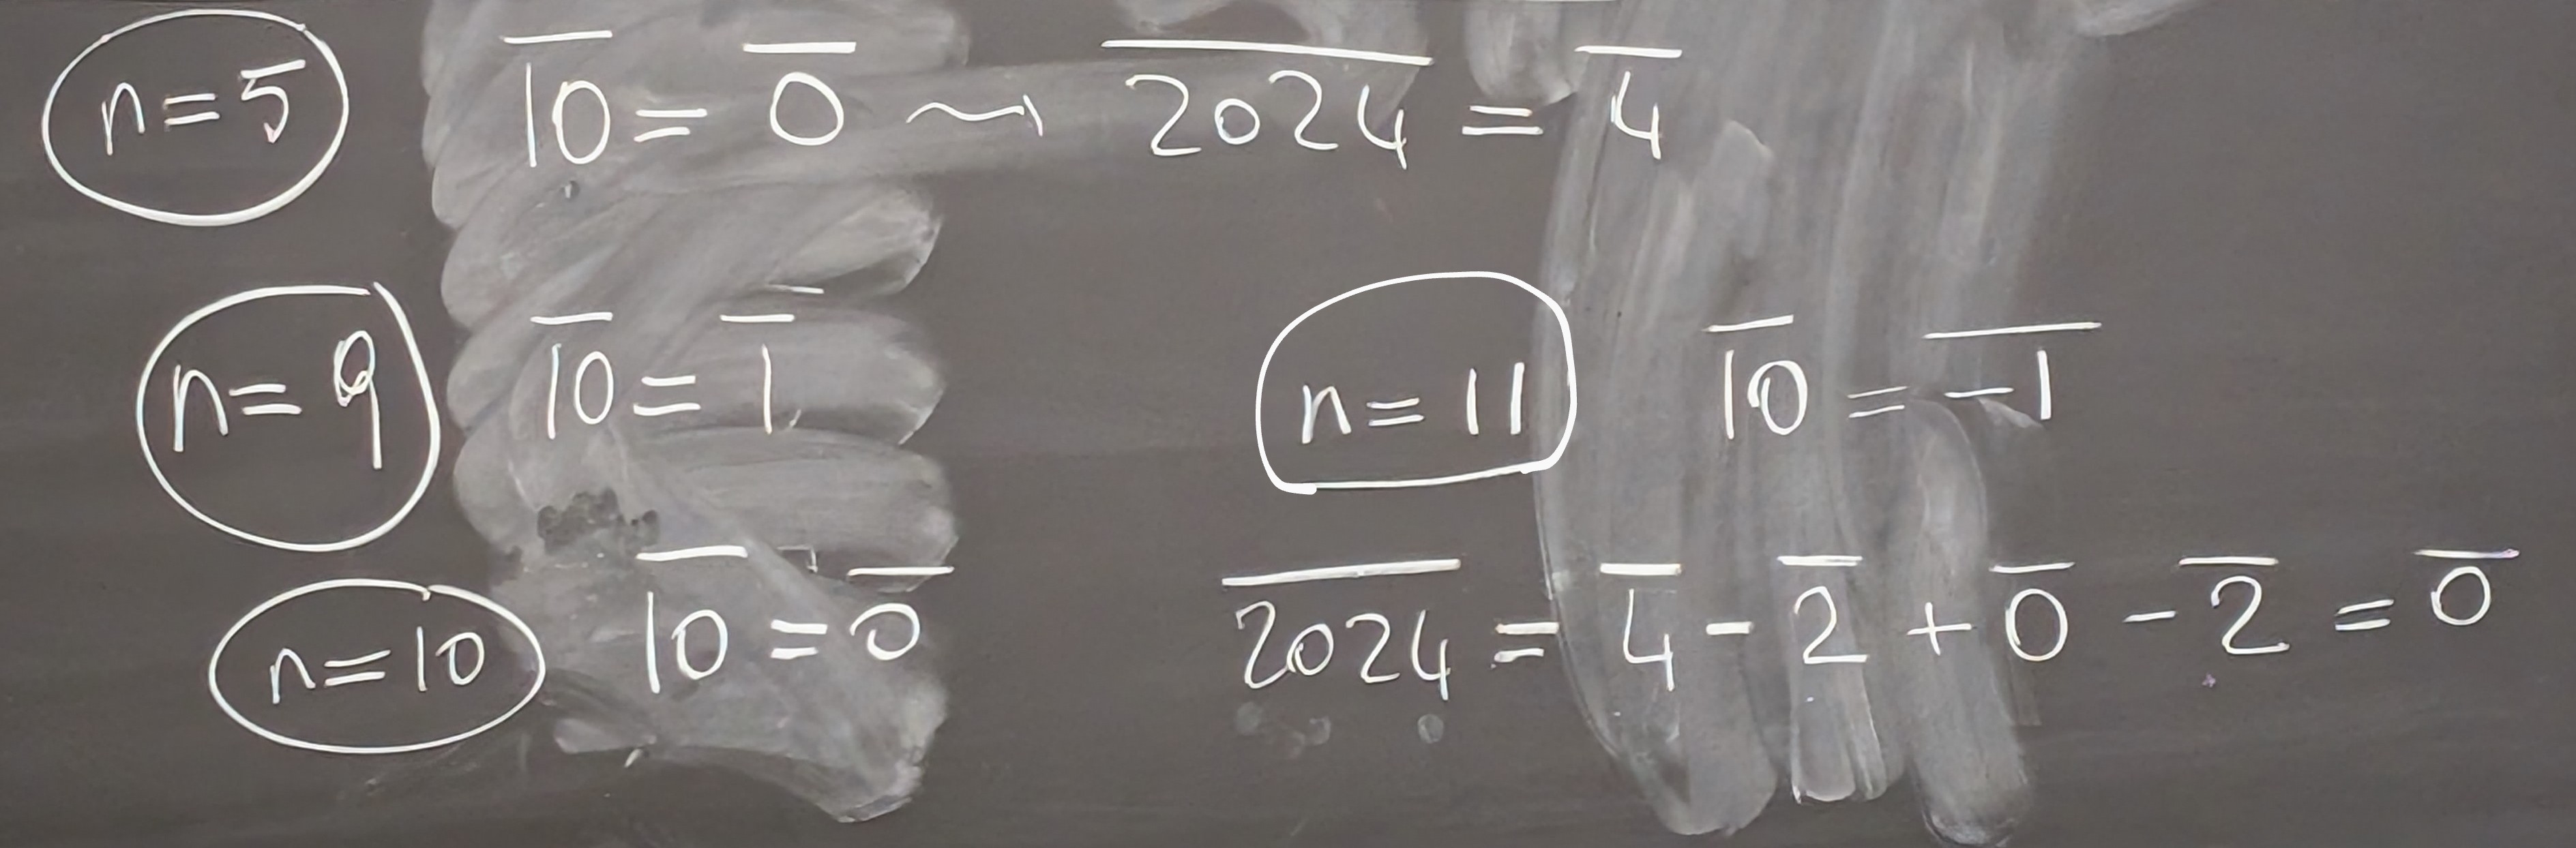 n=5 $\overline{10} = \overline{0} \leadsto \overline{2024} = \overline{4}$
n=9 $\overline{10} = \overline{1}$
n=11 $\overline{10} = \overline{-1}$
n=10 $\overline{10} = \overline{0}$
$\overline{2024} = \overline{4} - \overline{2} + \overline{0} - \overline{2} = \overline{0}$